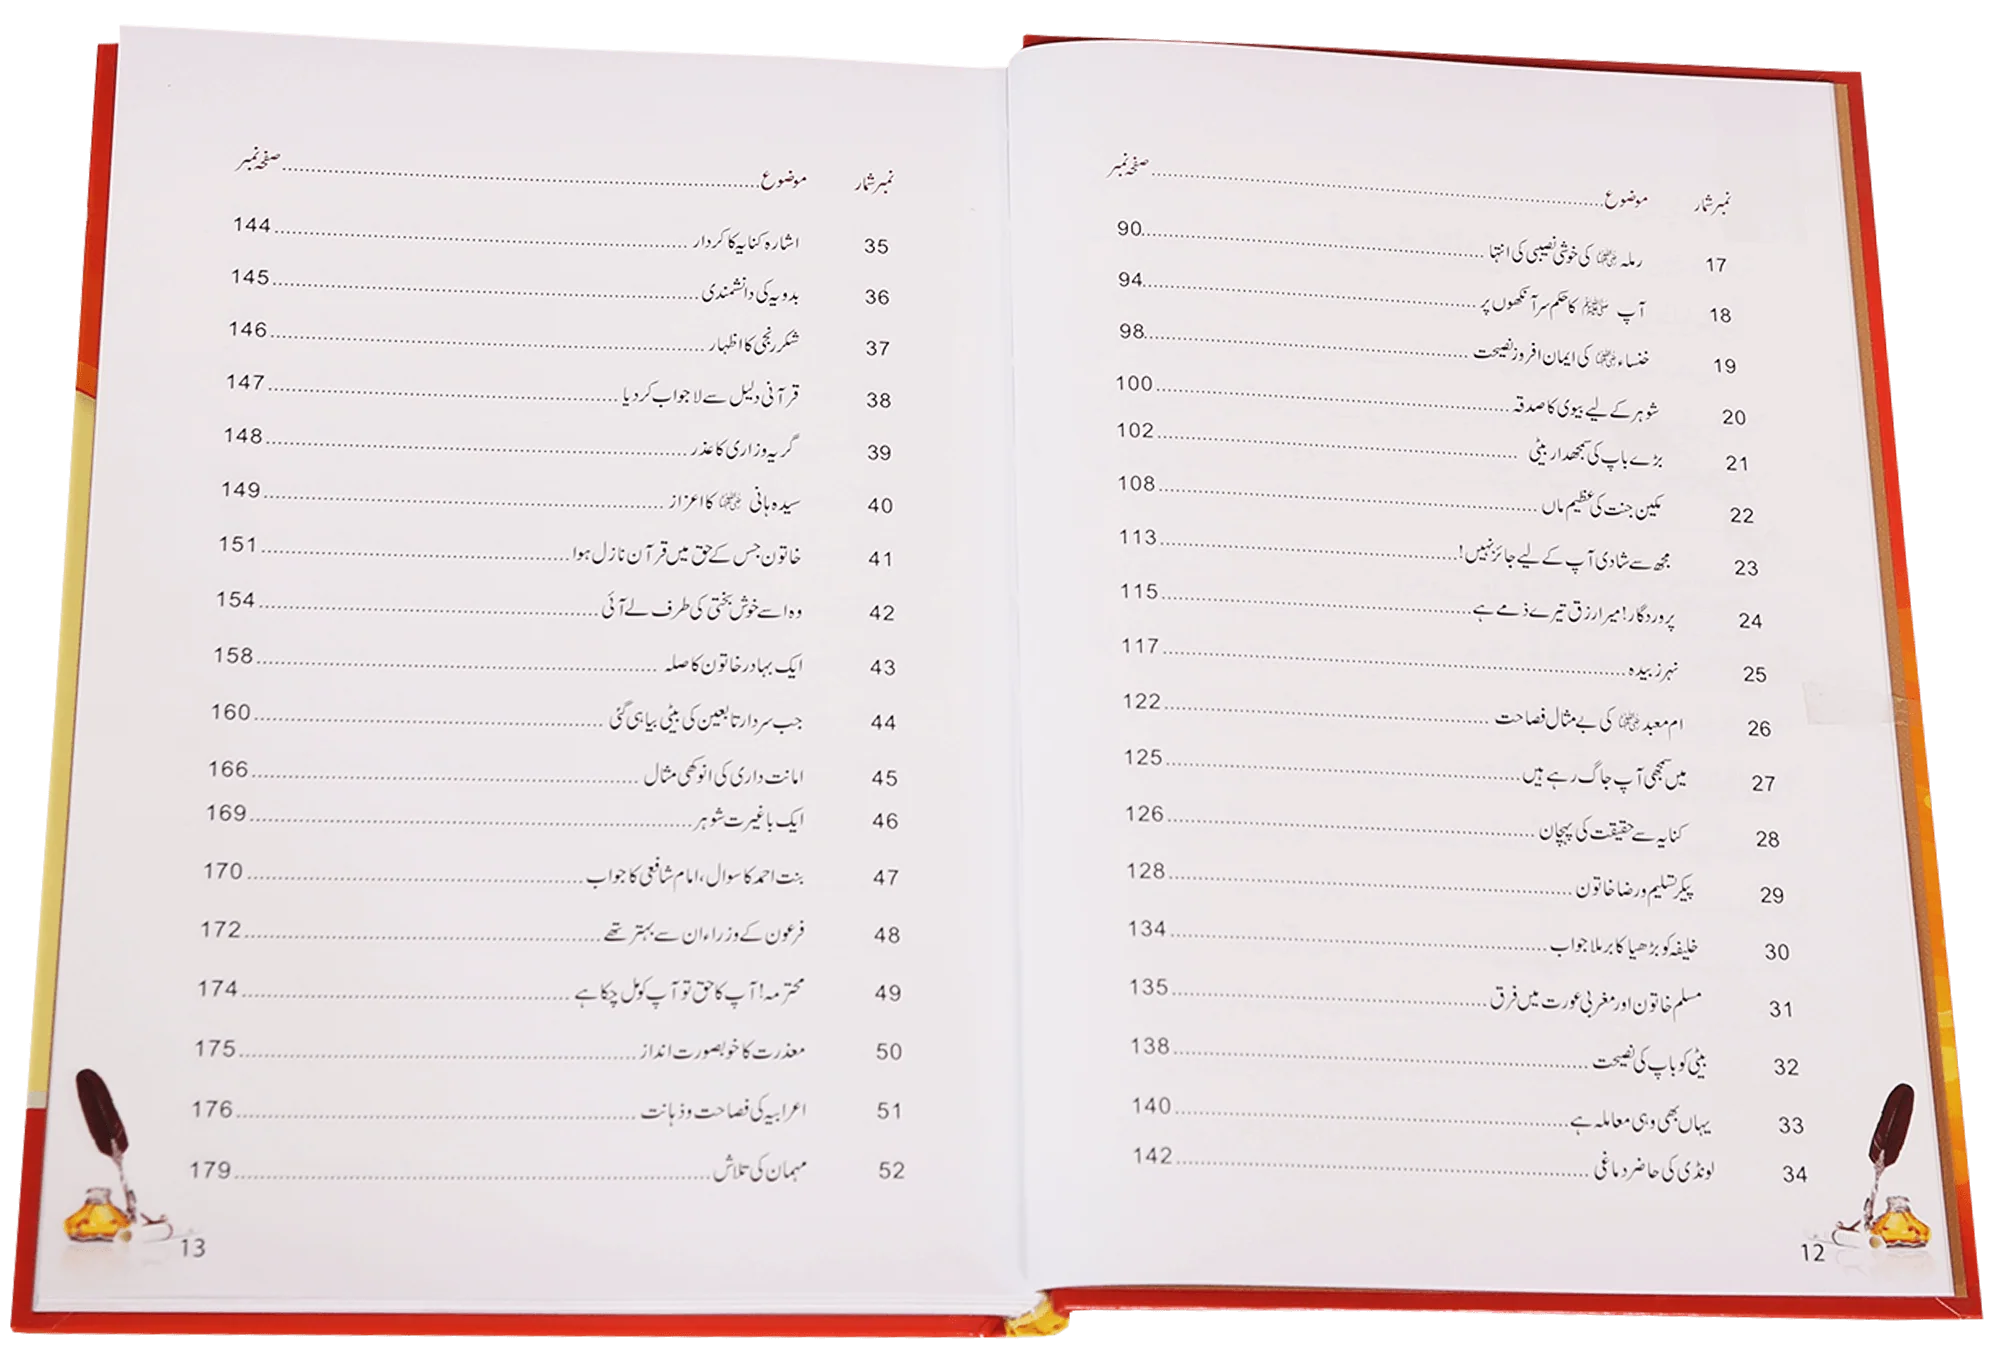 نمبر شمار موضوع صفحہ نمبر
17 رملہ رضی اللہ عنہا کی خوش نصیبی کی انتہا 90
18 آپ ﷺ کا حکم سر آنکھوں پر 94
19 خنساء رضی اللہ عنہا کی ایمان افروز نصیحت 98
20 شوہر کے لیے بیوی کا صدقہ 100
21 بڑے باپ کی سمجھدار بیٹی 102
22 مکین جنت کی عظیم ماں 108
23 مجھ سے شادی آپ کے لیے جائز نہیں! 113
24 پروردگار! میرا رزق تیرے ذمے ہے 115
25 نہر زبیدہ 117
26 ام معبد رضی اللہ عنہا کی بے مثال فصاحت 122
27 میں سمجھی آپ جاگ رہے ہیں 125
28 کنایہ سے حقیقت کی پہچان 126
29 پیکر تسلیم و رضا خاتون 128
30 خلیفہ کو بڑھیا کا برملا جواب 134
31 مسلم خاتون اور مغربی عورت میں فرق 135
32 بیٹی کو باپ کی نصیحت 138
33 یہاں بھی وہی معاملہ ہے 140
34 لونڈی کی حاضر دماغی 142
12
نمبر شمار موضوع صفحہ نمبر
35 اشارہ کنایہ کا کردار 144
36 بدویہ کی دانشمندی 145
37 شکر رنجی کا اظہار 146
38 قرآنی دلیل سے لاجواب کر دیا 147
39 گریہ وزاری کا عذر 148
40 سیدہ ہانی رضی اللہ عنہا کا اعزاز 149
41 خاتون جس کے حق میں قرآن نازل ہوا 151
42 وہ اسے خوش بختی کی طرف لے آئی 154
43 ایک بہادر خاتون کا صلہ 158
44 جب سردار تابعین کی بیٹی بیاہی گئی 160
45 امانت داری کی انوکھی مثال 166
46 ایک باغیرت شوہر 169
47 بنت احمد کا سوال، امام شافعی کا جواب 170
48 فرعون کے وزراء ان سے بہتر تھے 172
49 محترمہ! آپ کا حق تو آپ کو مل چکا ہے 174
50 معذرت کا خوبصورت انداز 175
51 اعرابیہ کی فصاحت و ذہانت 176
52 مہمان کی تلاش 179
13